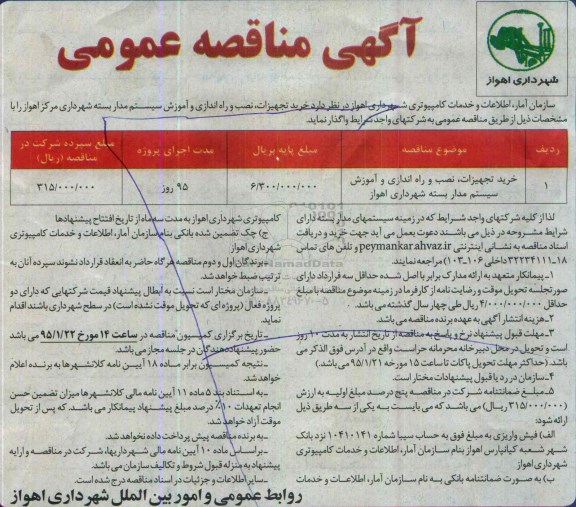 آگهی مناقصه عمومی
شهرداری اهواز
سازمان آمار، اطلاعات و خدمات کامپیوتری شهرداری اهواز در نظر دارد خرید تجهیزات، نصب و راه اندازی و آموزش سیستم مدار بسته شهرداری مرکز اهواز را با
مشخصات ذیل از طریق مناقصه عمومی به شرکتهای واجد شرایط واگذار نماید.
ردیف موضوع مناقصه مبلغ پایه بریال مدت اجرای پروژه مبلغ سپرده شرکت در مناقصه (ریال)
۱ خرید تجهیزات، نصب و راه اندازی و آموزش ۶/۳۰۰/۰۰۰/۰۰۰ ۹۵ روز ۳۱۵/۰۰۰/۰۰۰
سیستم مدار بسته شهرداری اهواز
لذا از کلیه شرکتهای واجد شرایط که در زمینه سیستمهای مدار بسته دارای
شرایط مشروحه در ذیل می باشند دعوت بعمل می آید جهت خرید و دریافت
اسناد مناقصه به نشانی اینترنتی peymankarahvaz.ir و تلفن های تماس
۱۸-۳۲۲۳۴۱۱۱ (داخلی ۱۰۶-۱۰۳) مراجعه نمایند.
۱-پیمانکار متعهد به ارائه مدارک برابر با اصل شده حداقل سه قرارداد دارای
صورتجلسه تحویل موقت و رضایت نامه از کارفرما در زمینه موضوع مناقصه با مبلغ
حداقل ۴/۰۰۰/۰۰۰/۰۰۰ ریال طی چهار سال گذشته می باشد.
۲-هزینه انتشار آگهی به عهده برنده مناقصه می باشد.
۳-مهلت قبول پیشنهاد نرخ و پاسخ به مناقصه از تاریخ انتشار به مدت ۱۰ روز
است و تحویل در محل دبیرخانه محرمانه حراست واقع در آدرس فوق الذکر می
باشد. (حداکثر مهلت تحویل پاکات تا ساعت ۱۵ مورخه ۹۵/۱/۲۱ می باشد)
۴-سازمان در رد یا قبول پیشنهادات مختار است.
۵-مبلغ ضمانتنامه شرکت در مناقصه پنج درصد مبلغ اولیه به ارزش
(۳۱۵/۰۰۰/۰۰۰ ریال) می باشد که می بایست به یکی از سه طریق ذیل
ارائه شود:
الف) فیش واریزی به مبلغ فوق به حساب سیبا شماره ۱۰۴۱۰۱۴۱ نزد بانک
شهر شعبه کیانپارس اهواز بنام سازمان آمار، اطلاعات و خدمات کامپیوتری
شهرداری اهواز
ب) به صورت ضمانتنامه بانکی به نام سازمان آمار، اطلاعات و خدمات
کامپیوتری شهرداری اهواز به مدت سه ماه از تاریخ افتتاح پیشنهادها
ج) چک تضمین شده بانکی بنام سازمان آمار، اطلاعات و خدمات کامپیوتری
شهرداری اهواز
-برندگان اول و دوم مناقصه هر گاه حاضر به انعقاد قرارداد نشوند سپرده آنان به
ترتیب ضبط خواهد شد.
-سازمان مختار است نسبت به ابطال پیشنهاد قیمت شرکتهایی که دارای دو
پروژه فعال (پروژه ای که تحویل موقت نشده است) در سطح شهرداری باشند اقدام
نماید.
-تاریخ برگزاری کمیسیون مناقصه در ساعت ۱۴ مورخ ۹۵/۱/۲۲ می باشد
حضور پیشنهاددهندگان در جلسه مجاز می باشد.
-نتیجه کمیسیون برابر ماده ۱۸ آیین نامه کلانشهرها به برنده اعلام
خواهد شد.
-به استناد بند ۵ ماده ۱۱ آیین نامه مالی کلانشهرها میزان تضمین حسن
انجام تعهدات ۱۰٪ درصد مبلغ پیشنهاد پیمانکار می باشد. که پس از تحویل
موقت آزاد خواهد شد.
-به برنده مناقصه پیش پرداخت داده نخواهد شد.
-بر اساس ماده ۱۰ آیین نامه مالی شهرداریها، شرکت در مناقصه و ارایه
پیشنهاد به منزله قبول شروط و تکالیف سازمان می باشد.
-سایر اطلاعات و جزئیات در اسناد مناقصه درج شده است.
روابط عمومی و امور بین الملل شهرداری اهواز